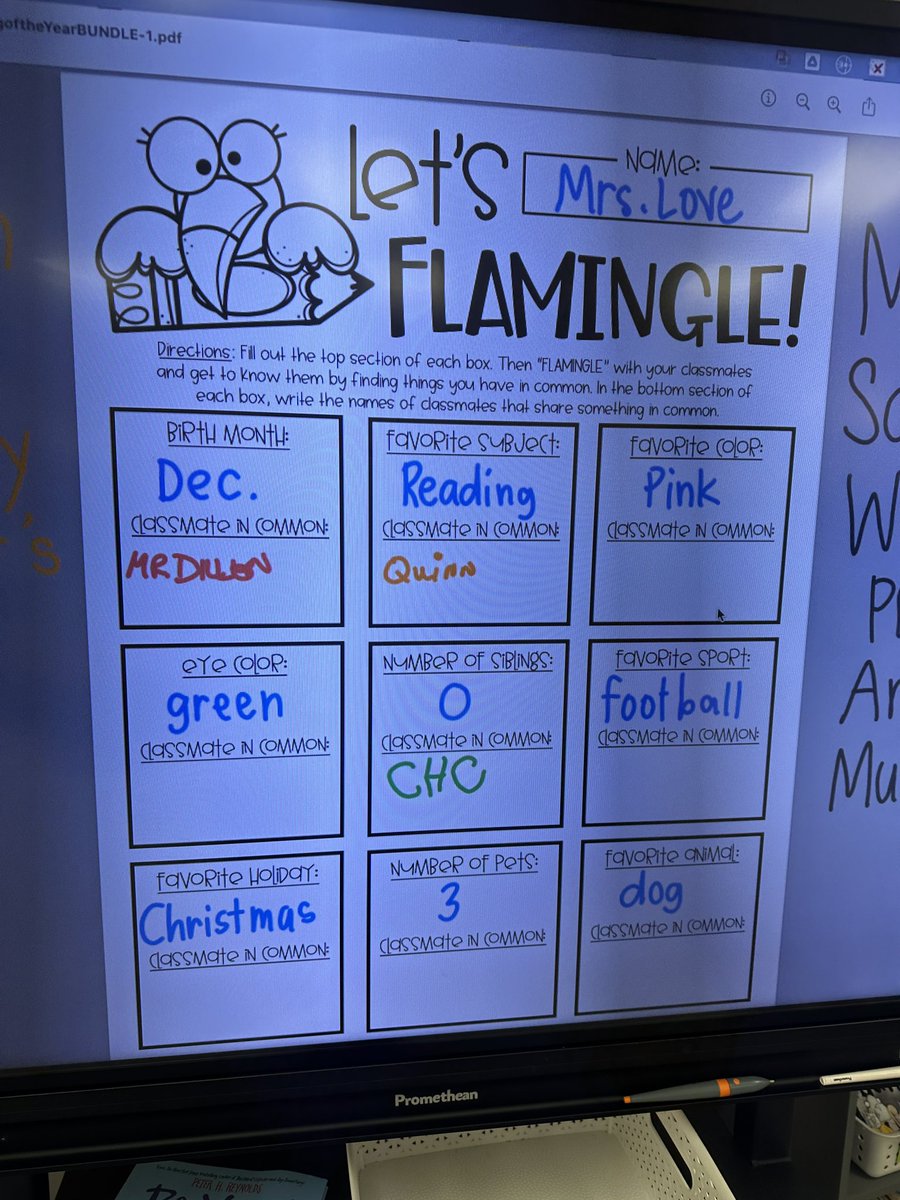 goftheYearBUNDLE-1.pdf
Let's
Name:
Mrs. Love
FLAMINGLE!
Directions: Fill out the top section of each box. Then "FLAMINGLE" with your classmates
and get to know them by finding things you have in common. In the bottom section of
each box, write the names of classmates that share something in common.
Birth Month:
Dec.
Classmate in common:
MR DILLEN
Favorite Subject:
Reading
Classmate in common:
Quinn
Favorite Color:
Pink
Classmate in common:
Eye Color:
green
Classmate in common:
Number of Siblings:
0
Classmate in common:
CHC
Favorite Sport:
football
Classmate in common:
Favorite Holiday:
Christmas
Classmate in common:
Number of Pets:
3
Classmate in common:
Favorite Animal:
dog
Classmate in common:
Promethean
PETER H. REYNOLDS